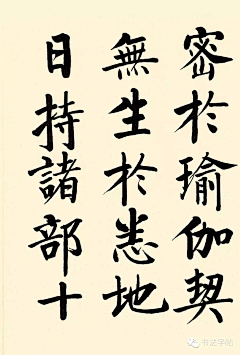 密於瑜伽契
無生於悉地
日持諸部十
书法字帖